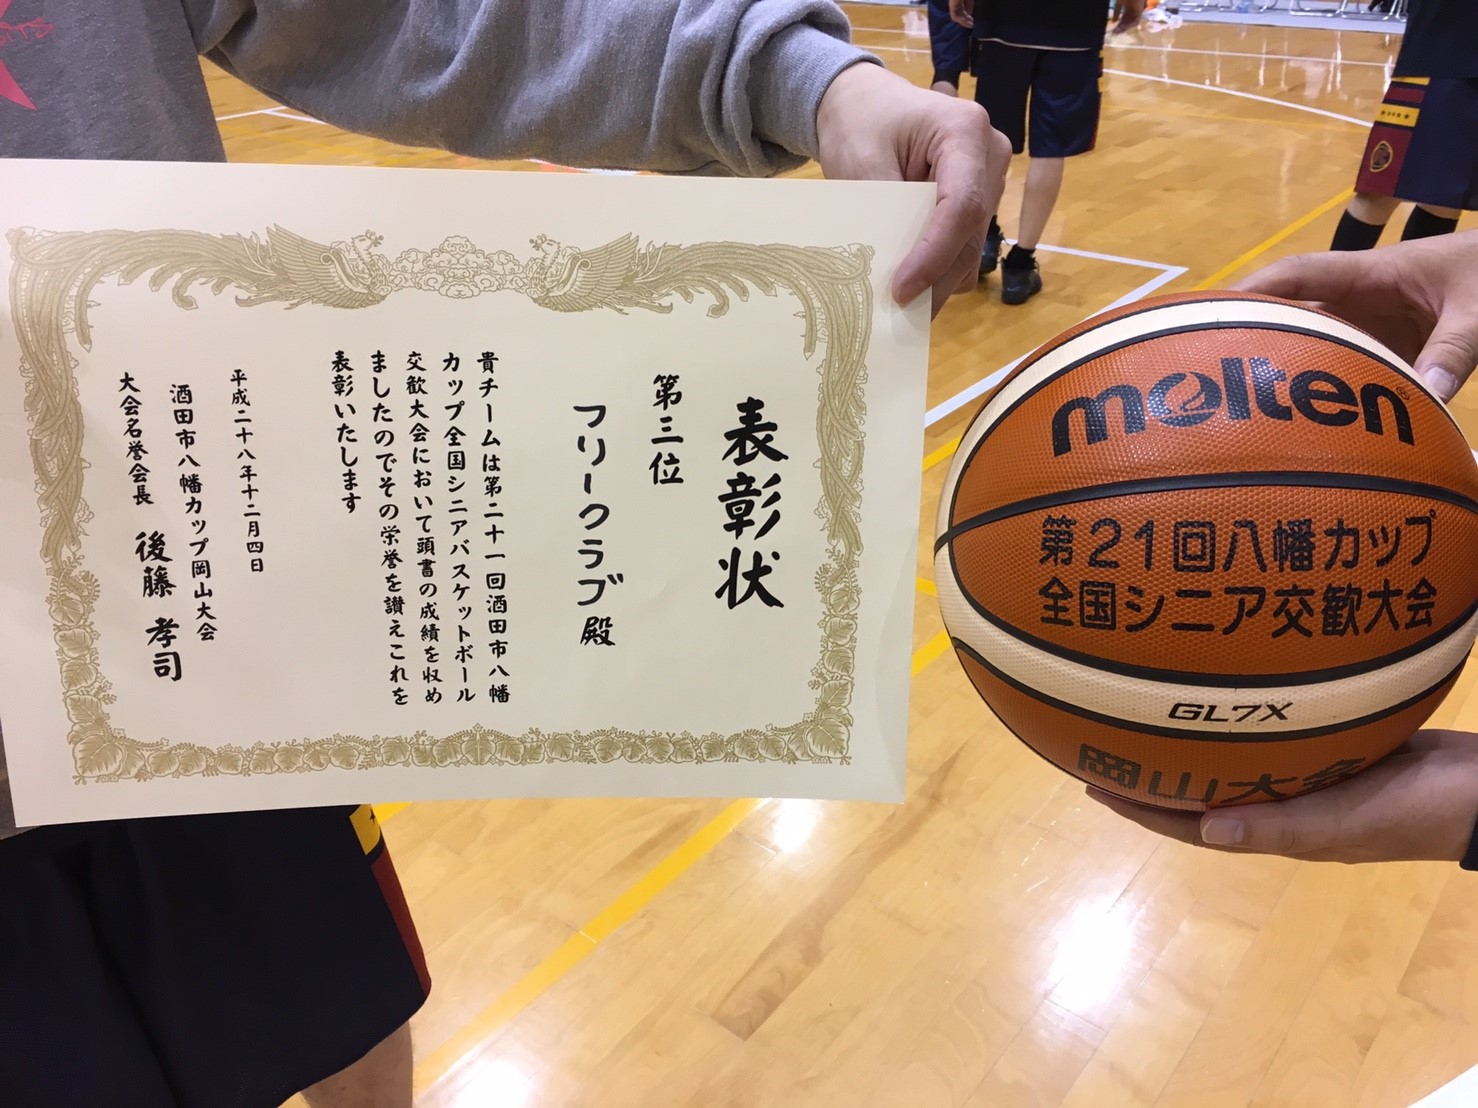 表彰状
第三位
フリークラブ殿
貴チームは第二十一回酒田市八幡
カップ全国シニアバスケットボール
交歓大会において頭書の成績を収め
ましたのでその栄誉を讃えこれを
表彰いたします
平成二十八年十二月四日
酒田市八幡カップ岡山大会
大会名誉会長 後藤 孝司
molten
第21回八幡カップ
全国シニア交歓大会
GL7X
岡山大会